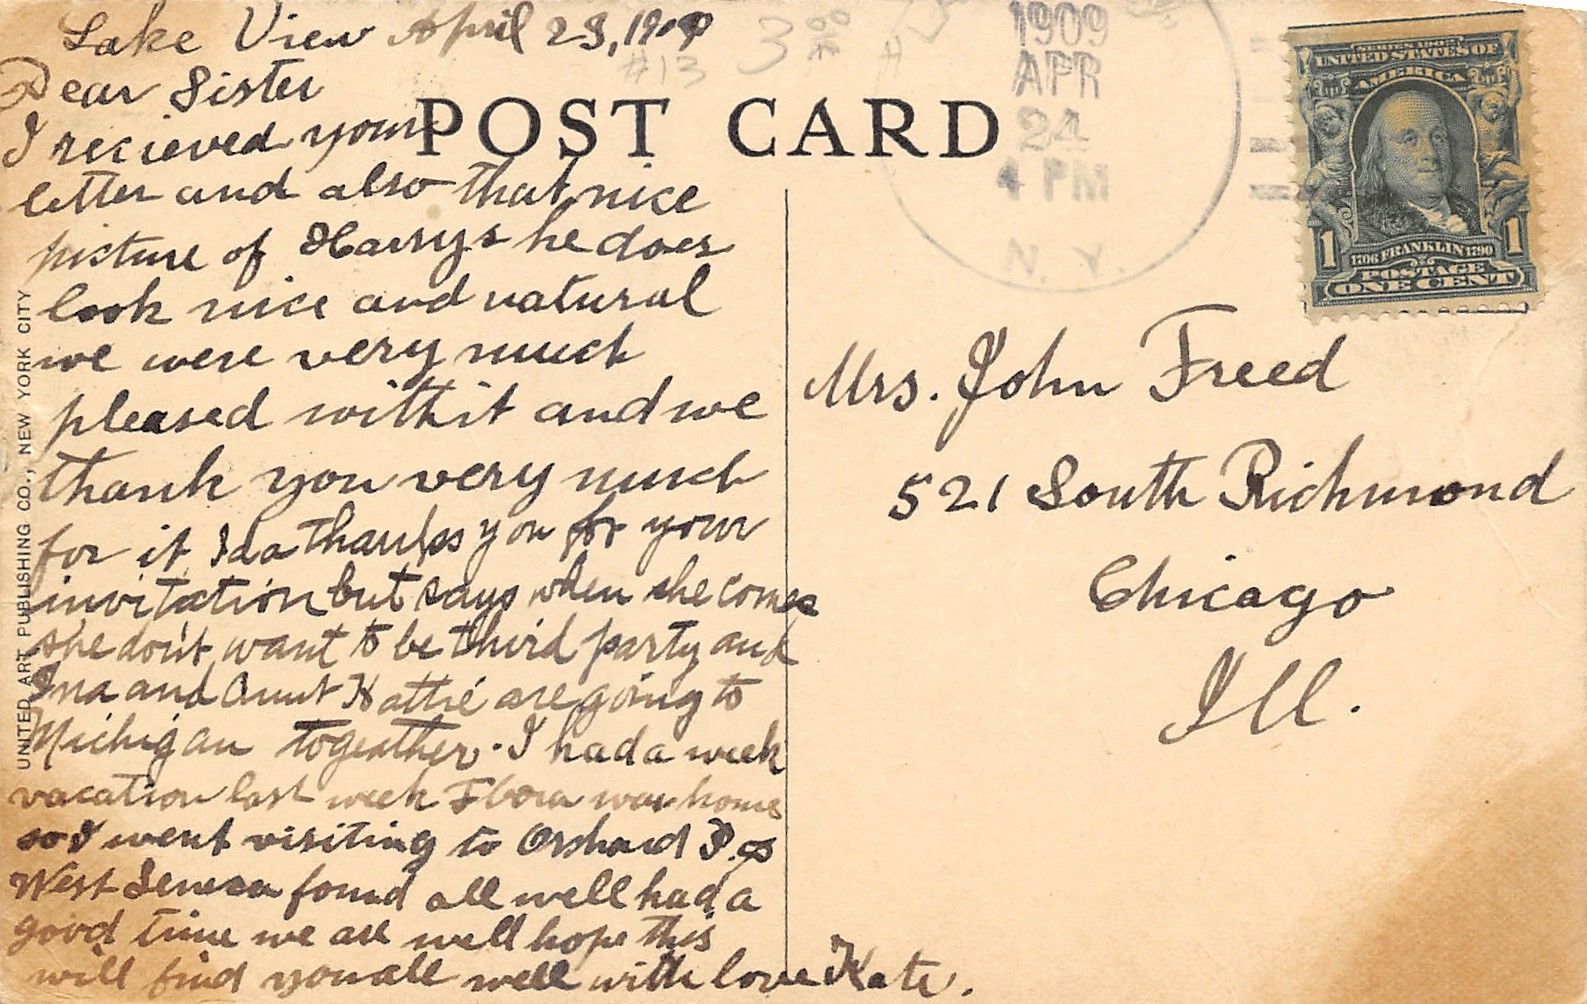 Lake View April 23, 1909
Dear Sister
I recieved your
letter and also that nice
picture of Harrys he does
look nice and natural
we were very much
pleased with it and we
thank you very much
for it Ida thanks you for your
invitation but says when she comes
she don't want to be third party and
Ina and Aunt Hattie are going to
Michigan togeather. I had a week
vacation last week Flora was home
so I went visiting to Orchard P. &
West Seneca found all well had a
good time we are well hope this
will find you all well with love Kate.
#13
3
POST CARD
1909
APR
24
4 PM
N. Y.
SERIES 1902
UNITED STATES OF
AMERICA
1 1
1706 FRANKLIN 1790
POSTAGE
ONE CENT
Mrs. John Freed
521 South Richmond
Chicago
Ill.
UNITED ART PUBLISHING CO., NEW YORK CITY